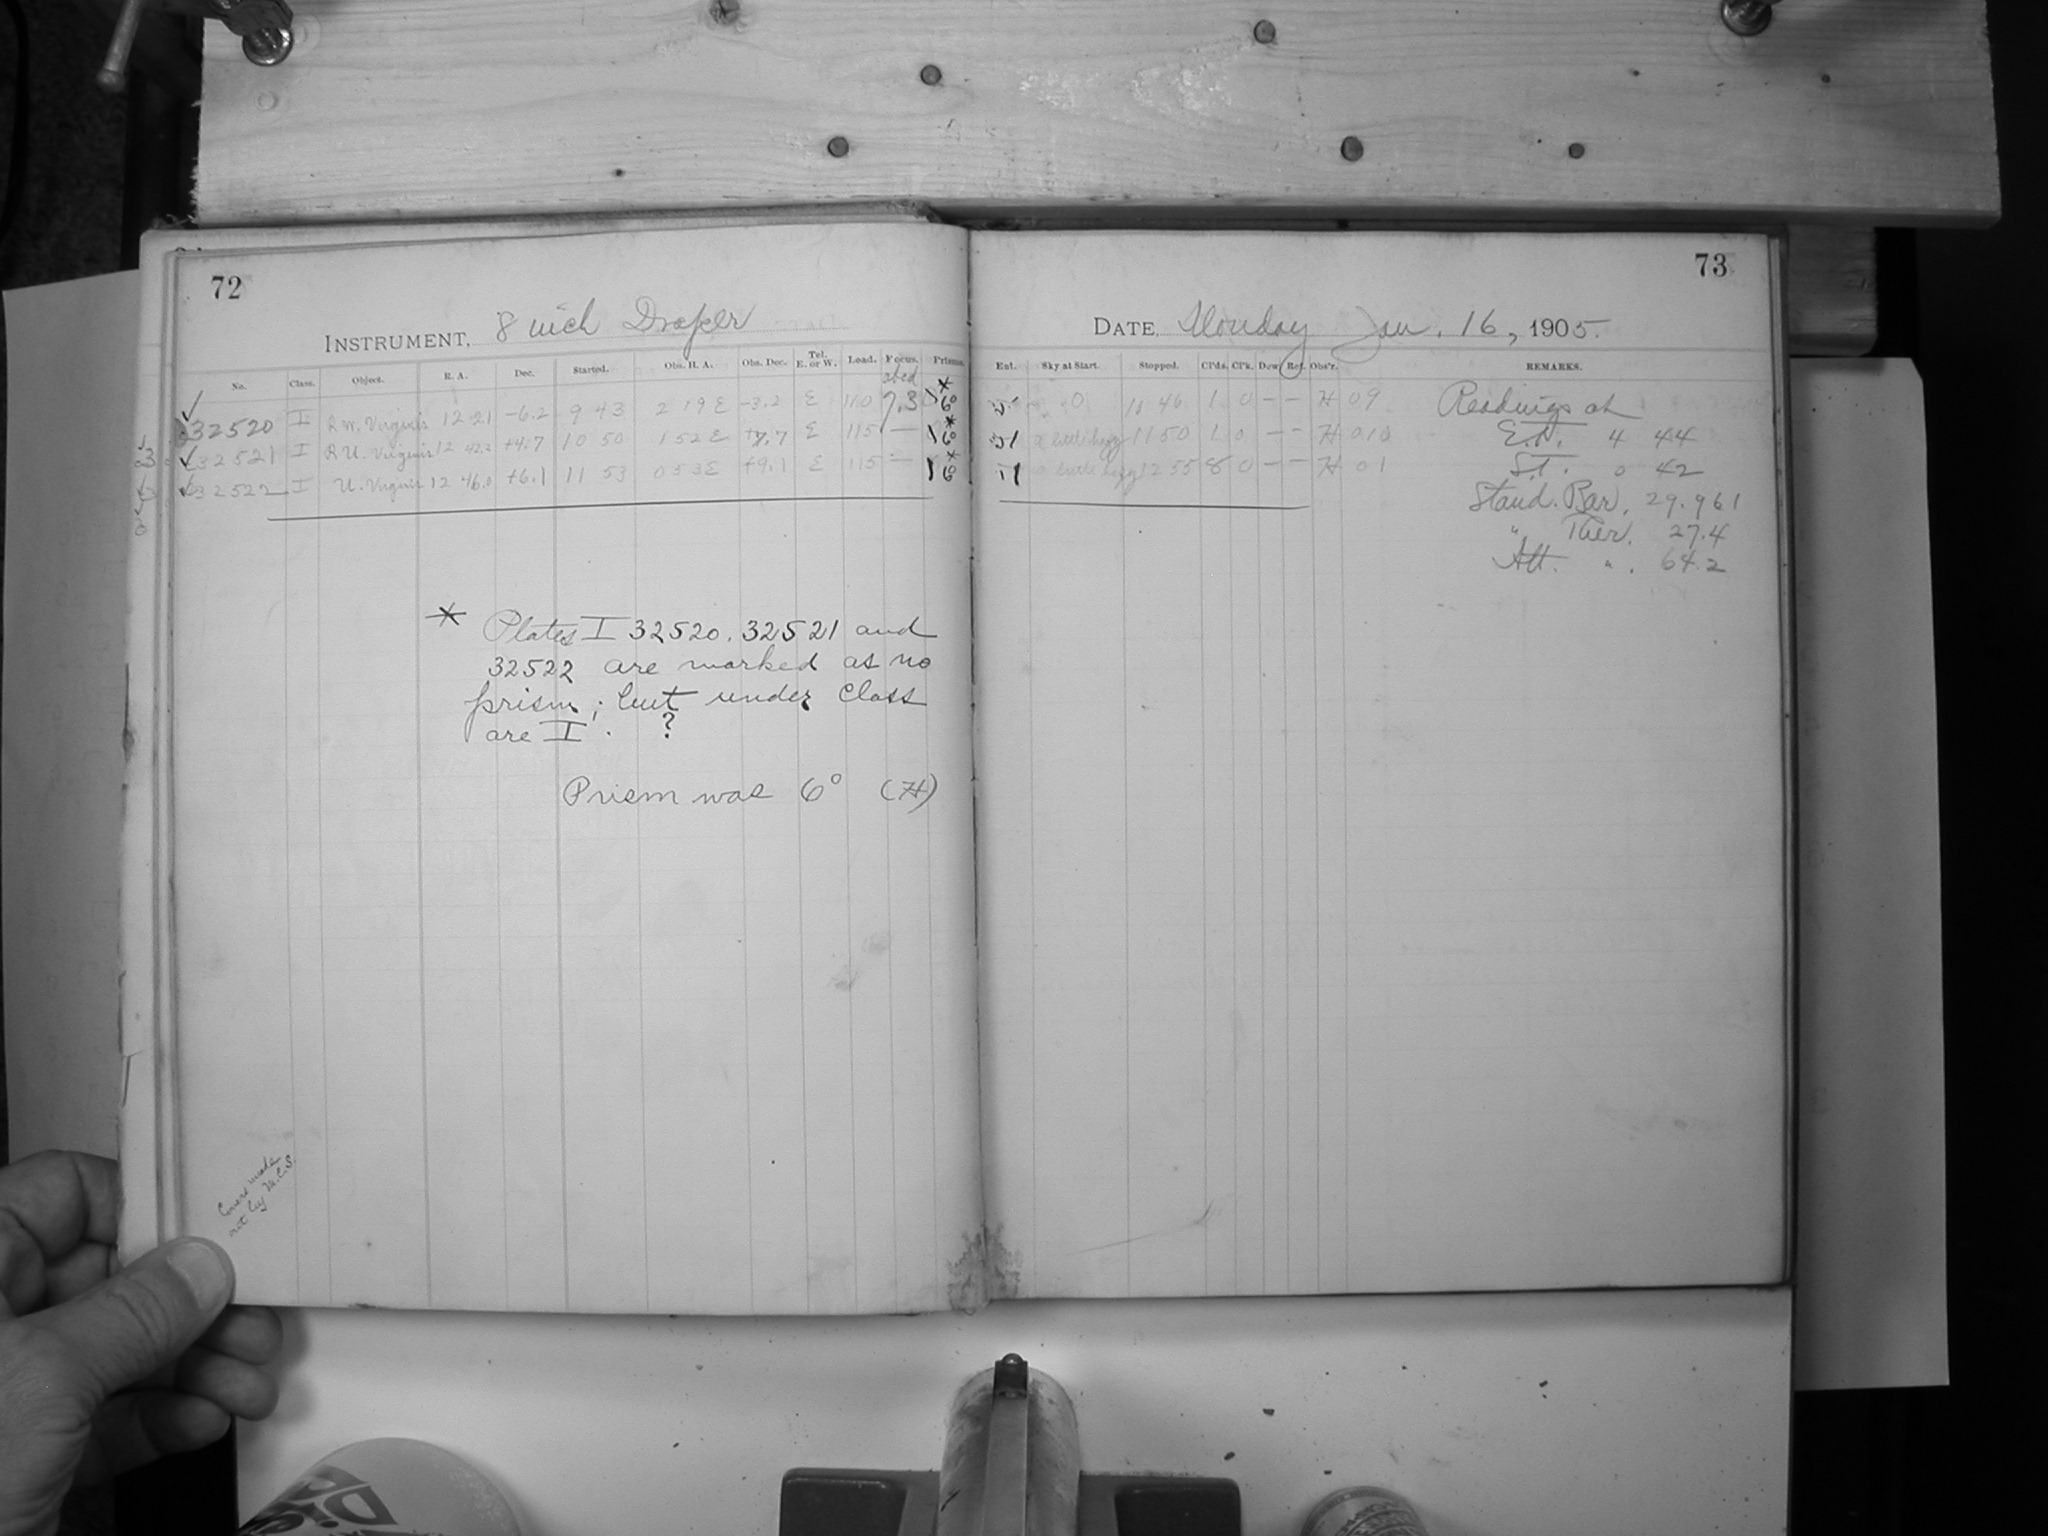 72
INSTRUMENT, 8 inch Draper
No. Class. Object. R. A. Dec. Started. Obs. H. A. Obs. Dec. Tel. E. or W. Load. Focus. Prisms.
abcd
32520 I R W. Virginis 12 21 -6.2 9 43 2 19 E -3.2 E 110 7.3 6° *
32521 I R U. Virginis 12 42.2 +4.7 10 50 1 52 E +7.7 E 115 — 6° *
32522 I U. Virginis 12 46.0 +6.1 11 53 0 53 E +9.1 E 115 — 6 *
* Plates I 32520. 32521 and
32522 are marked as no
prism; but under Class
are I. ?
Prism was 6° (H)
Covers made
not by M.C.S.
73
DATE, Monday Jan. 16, 1905.
Ent. Sky at Start. Stopped. Cl'ds. Cl'k. Dew. Ref. Obs'r. REMARKS.
0 46 1 0 – – H 09 Readings at
a little hazy 11 50 1 0 – – H 010 E.N. 4 44
a little hazy 12 55 8 0 – – H 01 S.T. 0 42
Stand. Bar. 29.961
" Ther. 27.4
Att. " . 64.2
Die